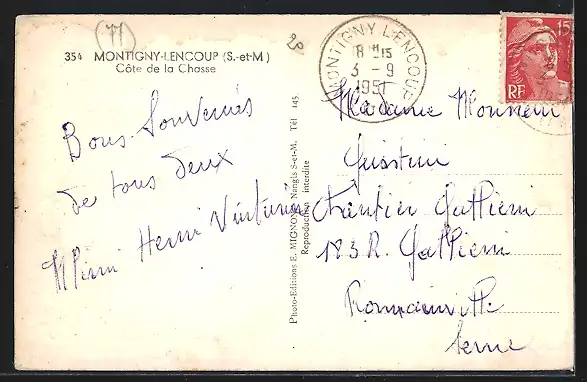 (77)
354 MONTIGNY-LENCOUP (S.-et-M)
Côte de la Chasse
MONTIGNY LENCOUP
18 H 15
3 - 9
1951
15F
RF
Bons Souvenirs
de tous deux
Mimi Henri
Photo-Editions E. MIGNON, Nangis S-et-M, Tél 145
Reproduction interdite
Madame Monsieur
Quartier Gallieni
183 R. Gallieni
Romainville
Seine